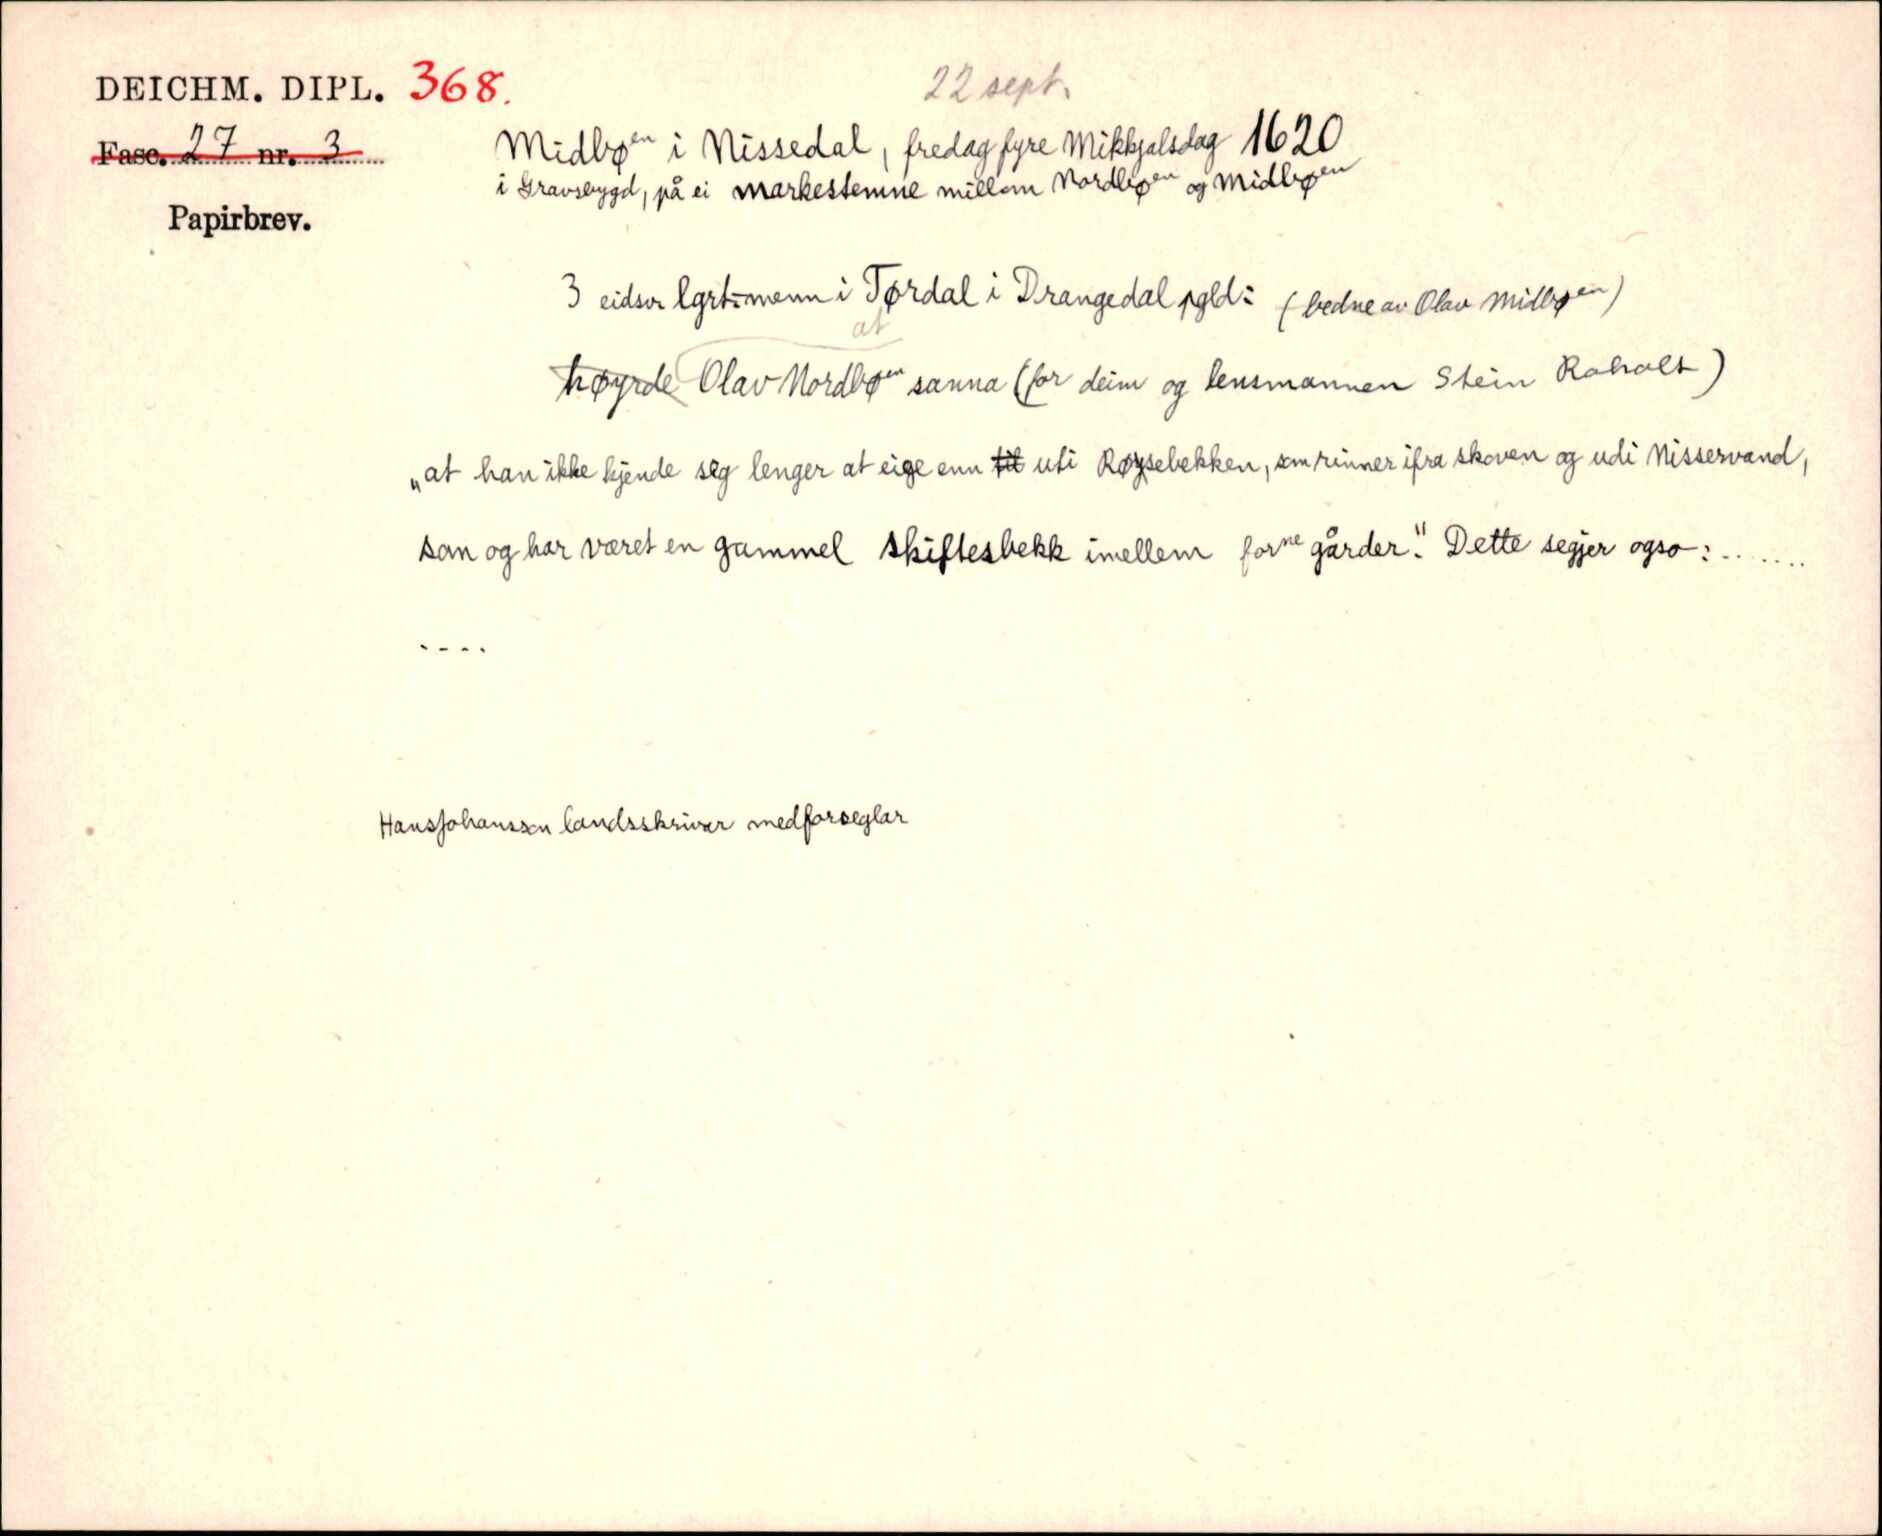 DEICHM. DIPL. 368.
22 sept.
Fasc. 27 nr. 3
Midbøen i Nissedal, fredag fyre Mikkjalsdag 1620
i Gravsbygd, på ei markestemne millom Nordbøen og Midbøen
Papirbrev.
3 eidsvr lgrt-menn i Tørdal i Drangedal, gld: (bedne av Olav Midbøen)
at
høyrde Olav Nordbøen sanna (for deim og lensmannen Stein Roholt)
„at han ikke kjende seg lenger at eige enn til uti Røysebekken, som rinner ifra skoven og udi Nisservand,
som og har været en gammel skiftesbekk imellem forne gårder." Dette segjer ogso: .......
....
Hans Johansson landsskrivar medforseglar